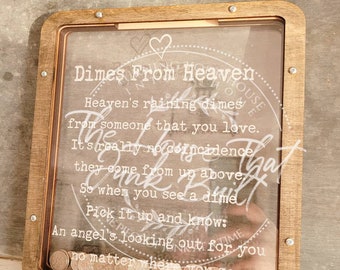 Dimes From Heaven
Heaven's raining dimes
from someone that you love.
It's really no coincidence
they come from up above.
So when you see a dime
Pick it up and know:
An angel's looking out for you
no matter where you
The House That
Dank Built